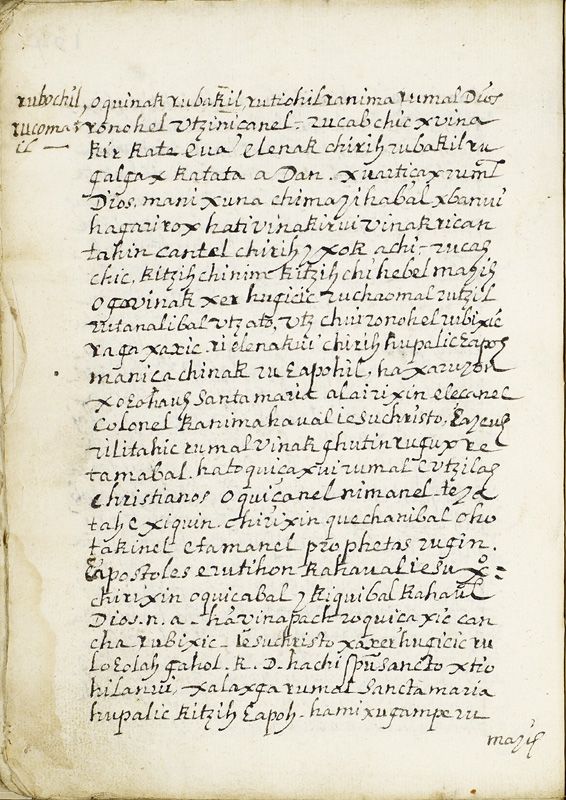 rubochil, oquinak rubakil, rutiohil ranima rumal Dios
rucoma r ronohel vtzinicanel. rucab chic xvina
il kir kate Eua elenak chirih rubakil ru
galgax katata a Dan. xuartiçax ruml
Dios. mani xuna chimazihabal xbanui
hagari rox hati vinakirui vinakrican
tahin cantel chirih y xok achi. rucah
chic, kitzih chinim kitzih chi hebel mazih
ogovinak xer hugicic ruchaomal rutzil
rutanalibal vtzato, vtz chui ronohel rubixic
raga xaxic. ri elenakui chirih hupalic
manica chinak ru ha xaruyon
Santa maria alairixin elecanel
Colonel kanima kavalie suchristo,
rilitahic rumal vinak ghutin ruguxre
tamabal. hatoquicaxui rumal cutzilah
christianos oquiçanel nimanel
tahe xiquin. chirixin quechanibal cho
takinel etamanel prophetas rugin.
Eapostoles erutihon kahaualiesu xo
chirixin oquicabal y kiquibal kahaul
Dios. n. a. havinapach roquicaxic can
cha rubixic. Iesuchristo xaxer hugicic ru
gahol. k. D. hachi spu sancto xtio
hilanui, xalaxga rumal Sancta maria
hupalic kitzih Eapoh. hamixugampe ru
mazih